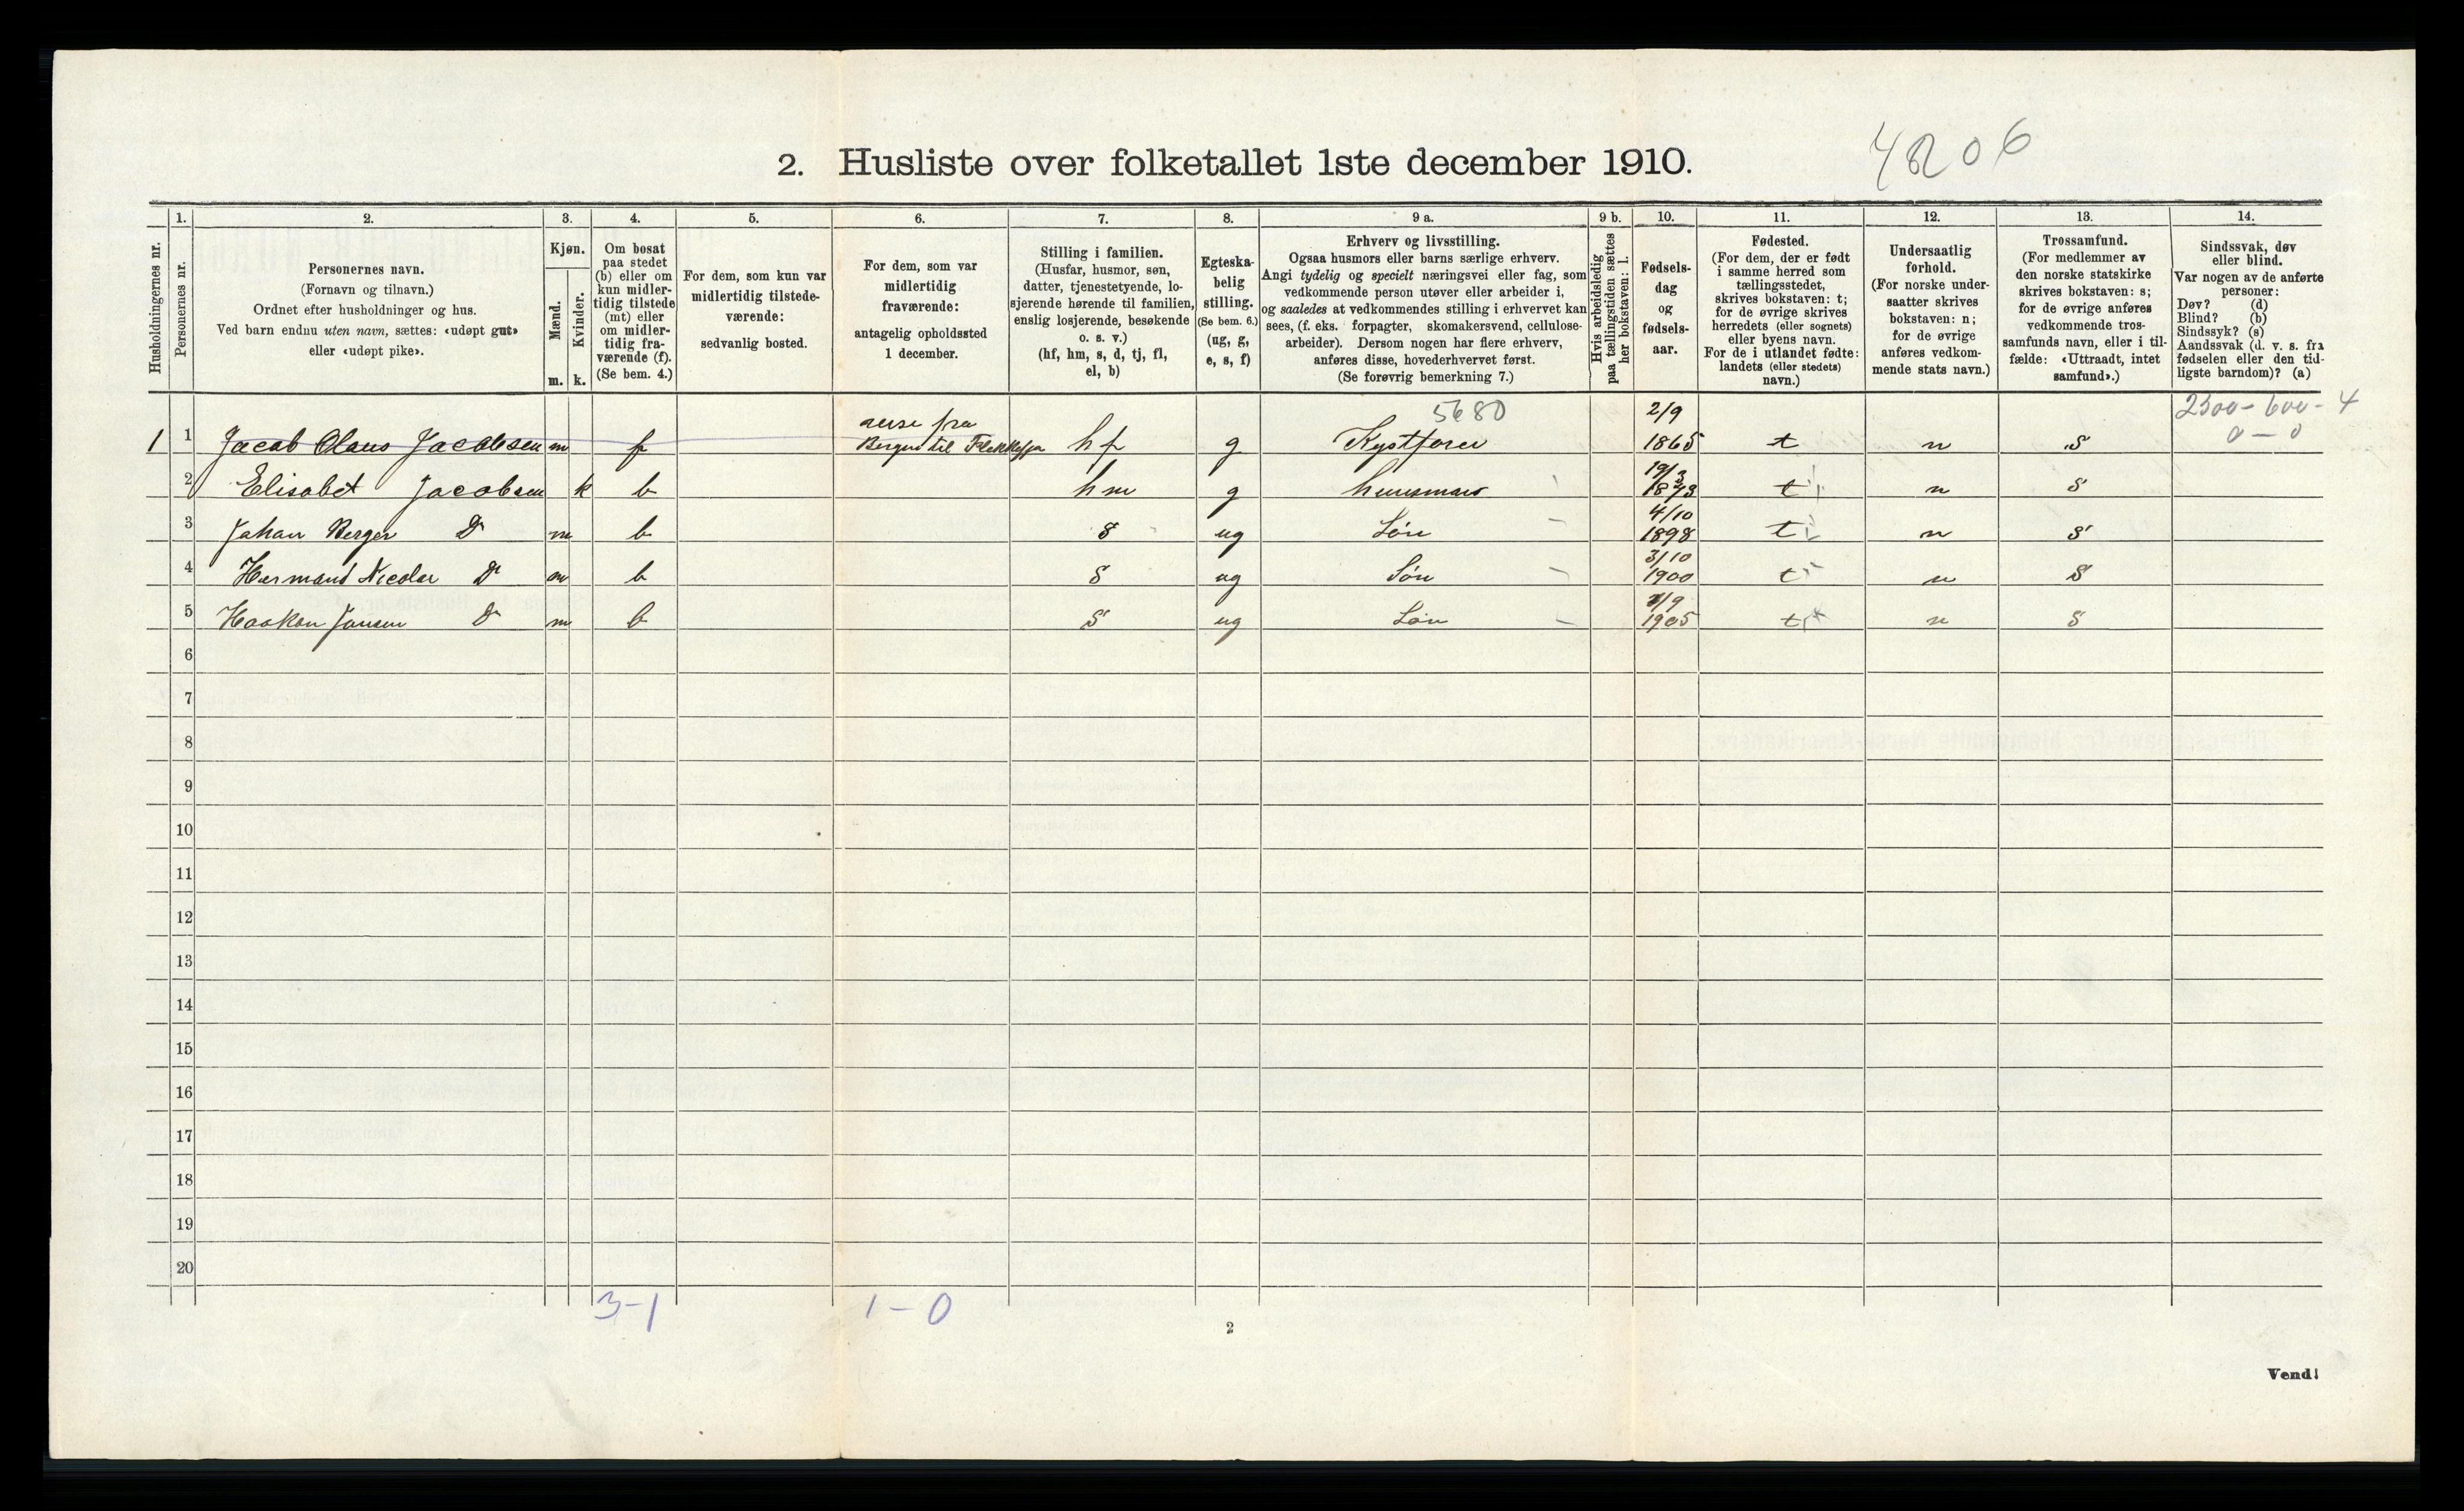 4206
2. Husliste over folketallet 1ste december 1910.
Husholdningernes nr.
1.
Personernes nr.
2.
Personernes navn.
(Fornavn og tilnavn.)
Ordnet efter husholdninger og hus.
Ved barn endnu uten navn, sættes: «udøpt gut»
eller «udøpt pike».
3.
Kjøn.
Mænd.
Kvinder.
m. k.
4.
Om bosat
paa stedet
(b) eller om
kun midler-
tidig tilstede
(mt) eller
om midler-
tidig fra-
værende (f).
(Se bem. 4.)
5.
For dem, som kun var
midlertidig tilstede-
værende:
sedvanlig bosted.
6.
For dem, som var
midlertidig
fraværende:
antagelig opholdssted
1 december.
7.
Stilling i familien.
(Husfar, husmor, søn,
datter, tjenestetyende, lo-
sjerende hørende til familien,
enslig losjerende, besøkende
o. s. v.)
(hf, hm, s, d, tj, fl,
el, b)
8.
Egteska-
belig
stilling.
(Se bem. 6.)
(ug, g,
e, s, f)
9 a.
Erhverv og livsstilling.
Ogsaa husmors eller barns særlige erhverv.
Angi tydelig og specielt næringsvei eller fag, som
vedkommende person utøver eller arbeider i,
og saaledes at vedkommendes stilling i erhvervet kan
sees, (f. eks. forpagter, skomakersvend, cellulose-
arbeider). Dersom nogen har flere erhverv,
anføres disse, hovederhvervet først.
(Se forøvrig bemerkning 7.)
9 b.
Hvis arbeidsledig
paa tællingstiden sættes
her bokstaven: l.
10.
Fødsels-
dag
og
fødsels-
aar.
11.
Fødested.
(For dem, der er født
i samme herred som
tællingsstedet,
skrives bokstaven: t;
for de øvrige skrives
herredets (eller sognets)
eller byens navn.
For de i utlandet fødte:
landets (eller stedets)
navn.)
12.
Undersaatlig
forhold.
(For norske under-
saatter skrives
bokstaven: n;
for de øvrige
anføres vedkom-
mende stats navn.)
13.
Trossamfund.
(For medlemmer av
den norske statskirke
skrives bokstaven: s;
for de øvrige anføres
vedkommende tros-
samfunds navn, eller i til-
fælde: «Uttraadt, intet
samfund».)
14.
Sindssvak, døv
eller blind.
Var nogen av de anførte
personer:
Døv? (d)
Blind? (b)
Sindssyk? (s)
Aandssvak (d. v. s. fra
fødselen eller den tid-
ligste barndom)? (a)
5680 2/9 2300-600-4
0-0
1 1 Jacob Olaus Jacobsen m f fra Bergen til hf g 1865 t n s
19/3
2 Elisabet Jacobsen k b hm g 1873 t n s
4/10
3 Johan Berger Do m b s ug Søn 1898 t n s
3/10
4 Hermand Nicolai Do m b s ug Søn 1900 t n s
/9
5 Haakon Do m b s ug Søn 1905 t n s
6
7
8
9
10
11
12
13
14
15
16
17
18
19
20
3-1 1-0
2
Vend!